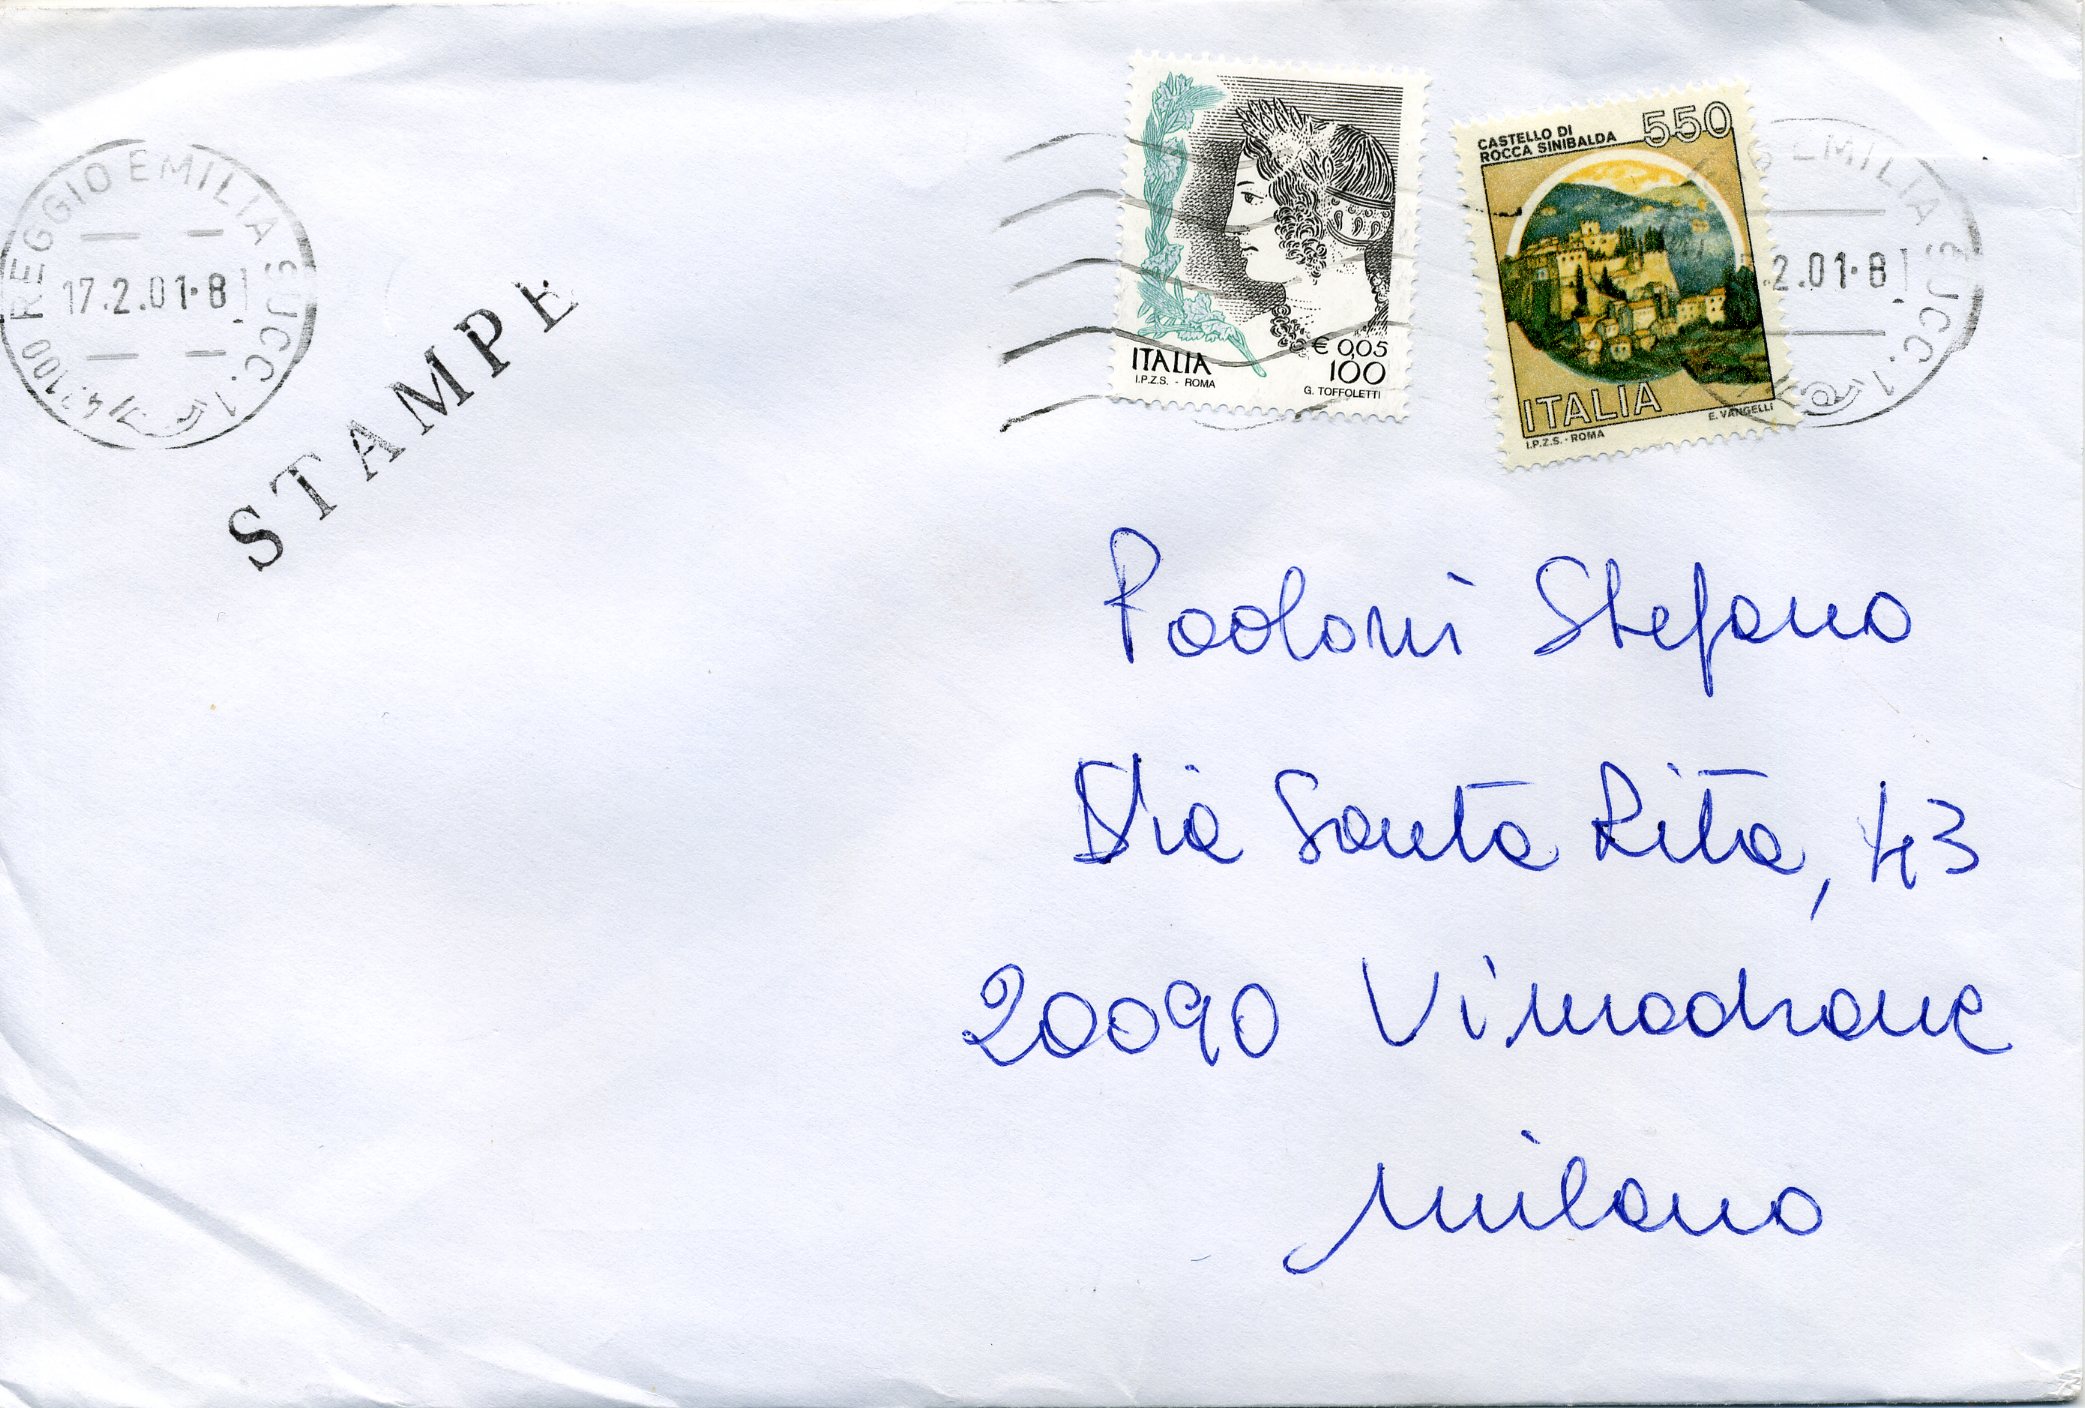 REGGIO EMILIA SUCC. 1
17.2.01-8
STAMPE
ITALIA
I.P.Z.S. - ROMA
€ 0,05
100
G. TOFFOLETTI
CASTELLO DI
ROCCA SINIBALDA
550
ITALIA
I.P.Z.S. - ROMA
E. VANGELLI
EMILIA SUCC. 1
.2.01-8
Paoloni Stefano
Via Santa Rita, 43
20090 Vimodrone
Milano